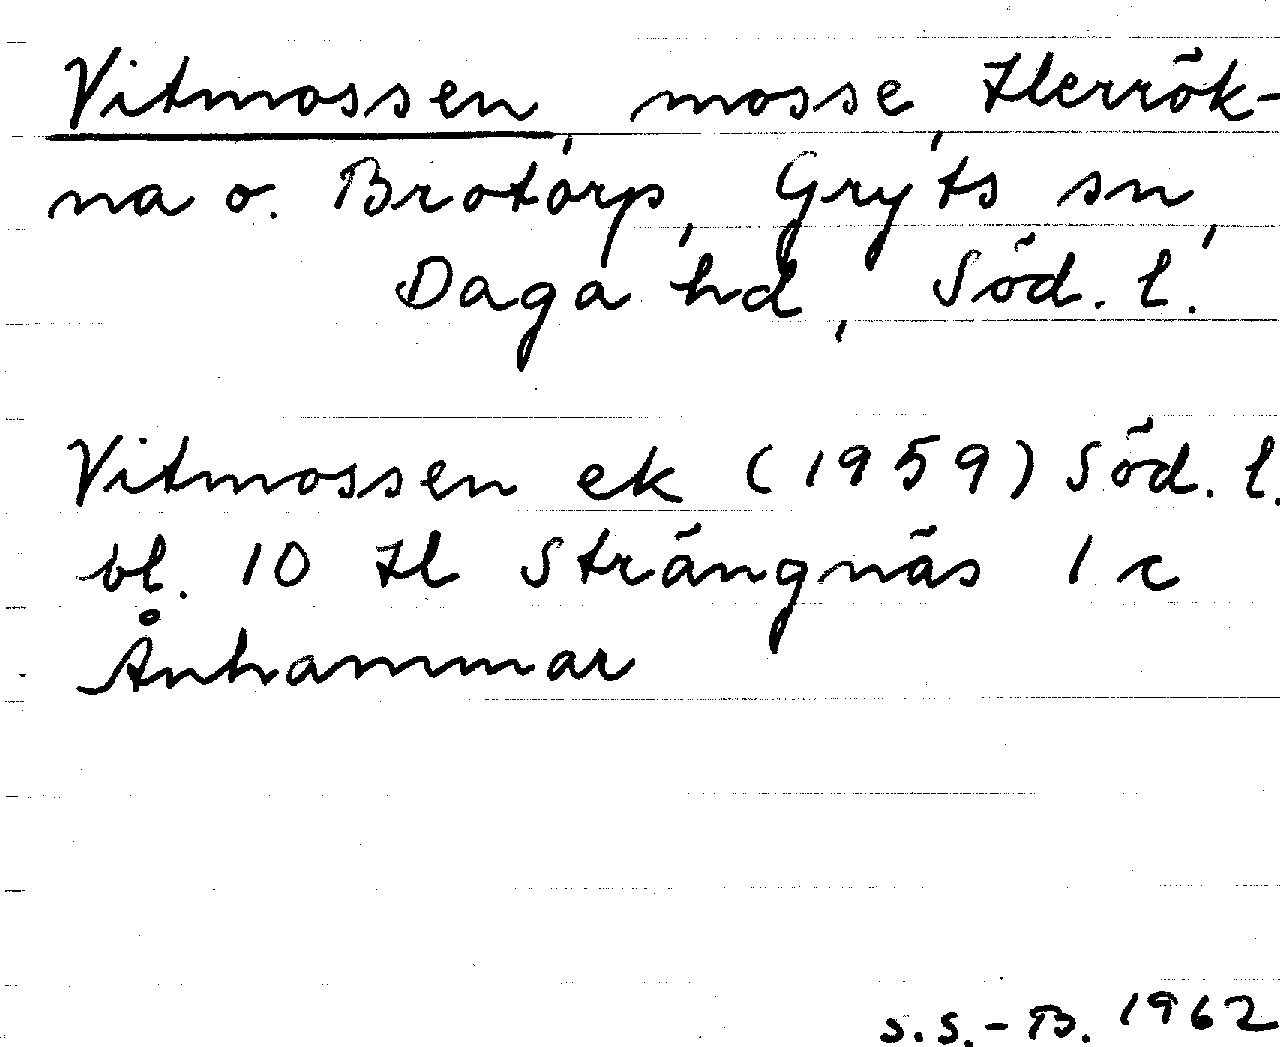 Vitmossen, mosse, Herrök-
na o. Brotorp, Gryts sn,
Daga hd, Söd. l.
Vitmossen ek (1959) Söd. l.
bl. 10 H Strängnäs 1 c
Ånhammar
S.S.-B. 1962